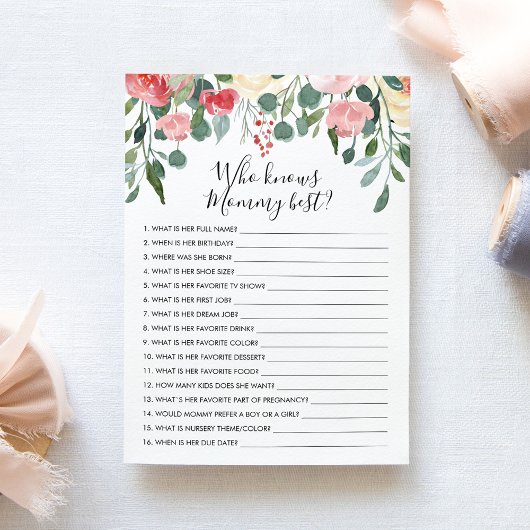 Who knows
Mommy best?
1. WHAT IS HER FULL NAME?
2. WHEN IS HER BIRTHDAY?
3. WHERE WAS SHE BORN?
4. WHAT IS HER SHOE SIZE?
5. WHAT IS HER FAVORITE TV SHOW?
6. WHAT IS HER FIRST JOB?
7. WHAT IS HER DREAM JOB?
8. WHAT IS HER FAVORITE DRINK?
9. WHAT IS HER FAVORITE COLOR?
10. WHAT IS HER FAVORITE DESSERT?
11. WHAT IS HER FAVORITE FOOD?
12. HOW MANY KIDS DOES SHE WANT?
13. WHAT'S HER FAVORITE PART OF PREGNANCY?
14. WOULD MOMMY PREFER A BOY OR A GIRL?
15. WHAT IS NURSERY THEME/COLOR?
16. WHEN IS HER DUE DATE?